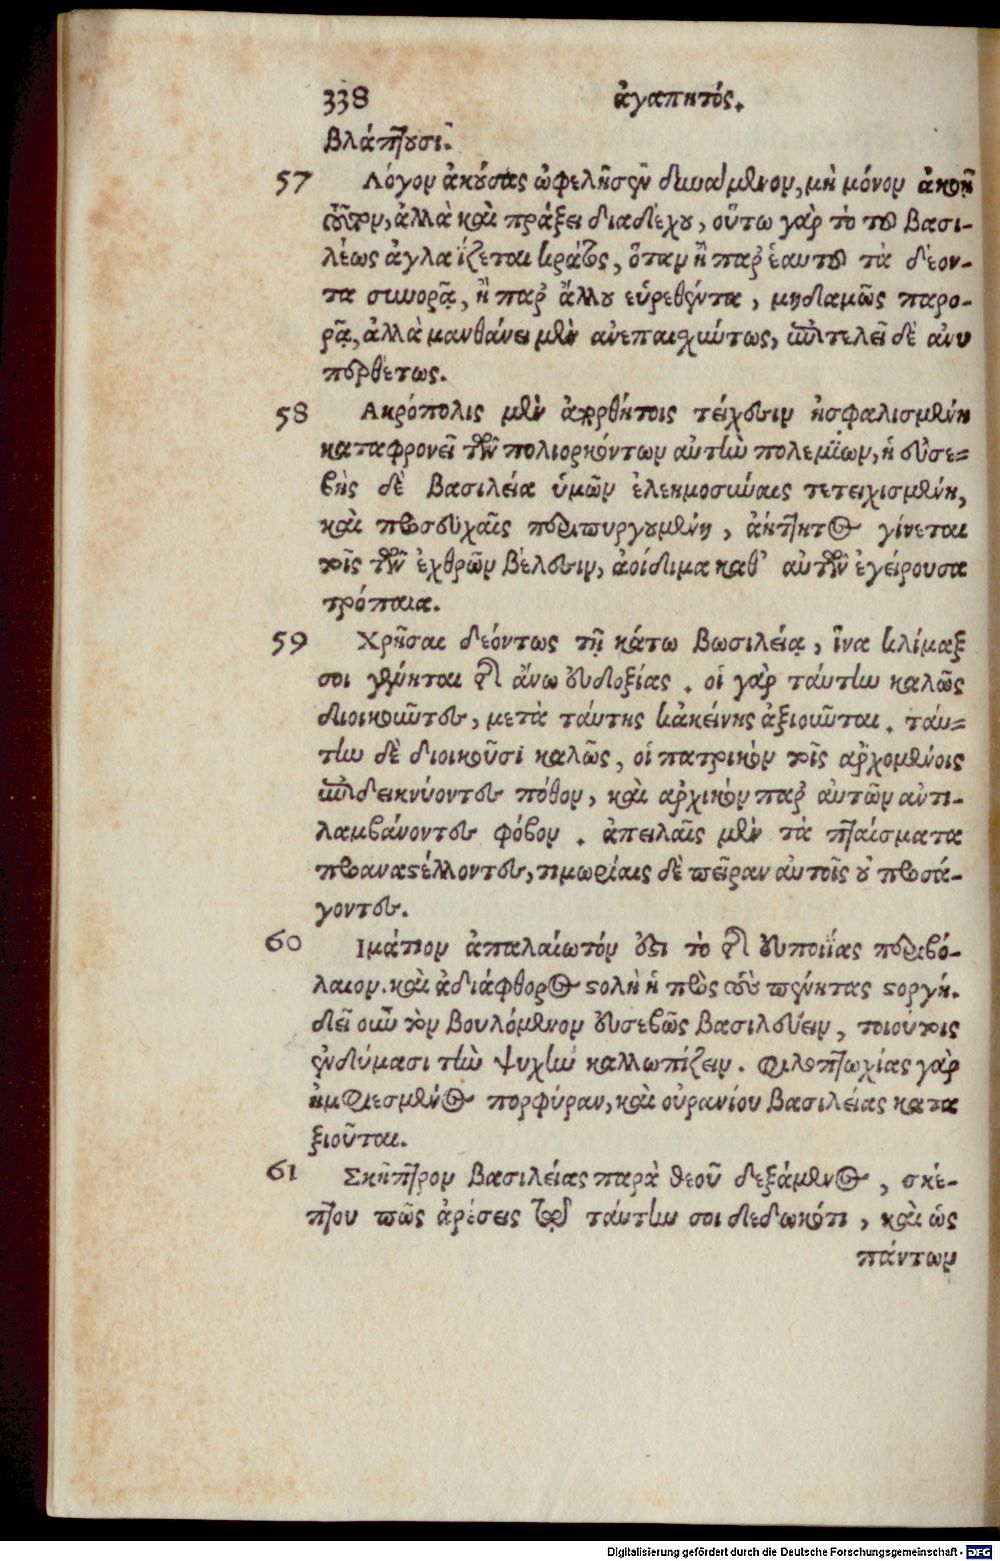 338 ἀγαπητός.
βλάπτουσι.
57 Λόγον ἀκούσας ὠφελῆσαι δυνάμενον, μὴ μόνον ἀκοῇ
τοῦτον, ἀλλὰ καὶ πράξει διαδέχου, οὕτω γὰρ τὸ τοῦ βασι-
λέως ἀγλαΐζεται κράτος, ὅταν ἢ παρ' ἑαυτοῦ τὰ δέον-
τα συνορᾷ, ἢ παρ' ἄλλου εὑρεθέντα, μηδαμῶς παρο-
ρᾷ, ἀλλὰ μανθάνει μὲν ἀνεπαισχύντως, ἐπιτελεῖ δὲ ἀνυ
περθέτως.
58 Ακρόπολις μὲν ἀρρήκτοις τείχεσιν ἠσφαλισμένη
καταφρονεῖ τῶν πολιορκόντων αὐτὴν πολεμίων, ἡ εὐσε-
βὴς δὲ βασιλεία ὑμῶν ἐλεημοσύναις τετειχισμένη,
καὶ προσευχαῖς περιπυργουμένη, ἀήττητος γίνεται
τοῖς τῶν ἐχθρῶν βέλεσιν, ἀοίδιμα καθ' αὐτῶν ἐγείρουσα
τρόπαια.
59 Χρῆσαι δεόντως τῇ κάτω βωσιλείᾳ, ἵνα κλίμαξ
σοι γένηται τῆς ἄνω εὐδοξίας. οἱ γὰρ ταύτην καλῶς
διοικοῦντες, μετὰ ταύτης κἀκείνης ἀξιοῦνται. ταύ-
την δὲ διοικοῦσι καλῶς, οἱ πατρικὸν τοῖς ἀρχομένοις
ἐπιδεικνύοντες πόθον, καὶ ἀρχικὸν παρ' αὐτῶν ἀντι-
λαμβάνοντες φόβον. ἀπειλαῖς μὲν τὰ πταίσματα
προαναστέλλοντες, τιμωρίαις δὲ πεῖραν αὐτοῖς οὐ προσά-
γοντες.
60 Ιμάτιον ἀπαλαίωτόν ἐστι τὸ τῆς εὐποιΐας περιβό-
λαιον. καὶ ἀδιάφθορος στολὴ ἡ πρὸς τοὺς πένητας στοργή.
δεῖ οὖν τὸν βουλόμενον εὐσεβῶς βασιλεύειν, τοιούτοις
ἐνδύμασι τὴν ψυχὴν καλλωπίζειν. φιλοπτωχίας γὰρ
ἠμφιεσμένος πορφύραν, καὶ οὐρανίου βασιλείας κατα
ξιοῦται.
61 Σκῆπτρον βασιλείας παρὰ θεοῦ δεξάμενος, σκέ-
πτου πῶς ἀρέσεις τῷ ταύτην σοι δεδωκότι, καὶ ὡς
πάντων
Digitalisierung gefördert durch die Deutsche Forschungsgemeinschaft - DFG